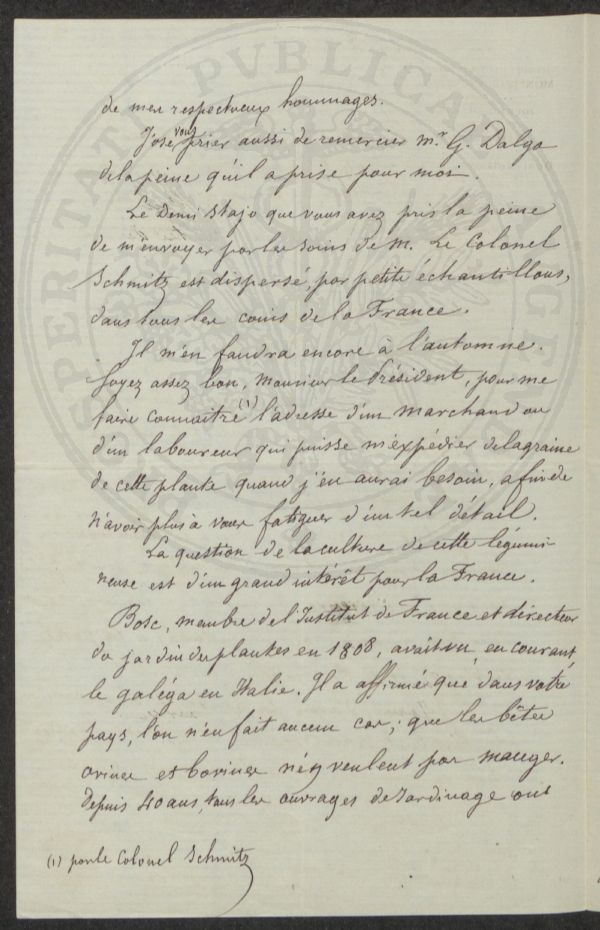 de mes respectueux hommages.
J'ose vous prier aussi de remercier Mr. G. Dalgo
de la peine qu'il a prise pour moi.
Le Demi Stajo que vous avez pris la peine
de m'envoyer par les soins de M. Le Colonel
Schmitz est dispersé, par petits échantillons,
dans tous les coins de la France.
Il m'en faudra encore à l'automne.
Soyez assez bon, Monsieur le Président, pour me
faire connaitre (1) l'adresse d'un marchand ou
d'un laboureur qui puisse m'expédier de la graine
de cette plante quand j'en aurai besoin, afin de
n'avoir plus à vous fatiguer d'un tel détail.
La question de la culture de cette légumi
neuse est d'un grand intérêt pour la France.
Bosc, membre de l'Institut de France et directeur
du jardin des plantes en 1808, avait vu, en courant,
le galéga en Italie. Il a affirmé que dans votre
pays, l'on n'en fait aucun cas; que les bêtes
ovines et bovines n'en veulent pas manger.
Depuis 40 ans, tous les ouvrages de Jardinage ont
(1) par le Colonel Schmitz
PUBLICA